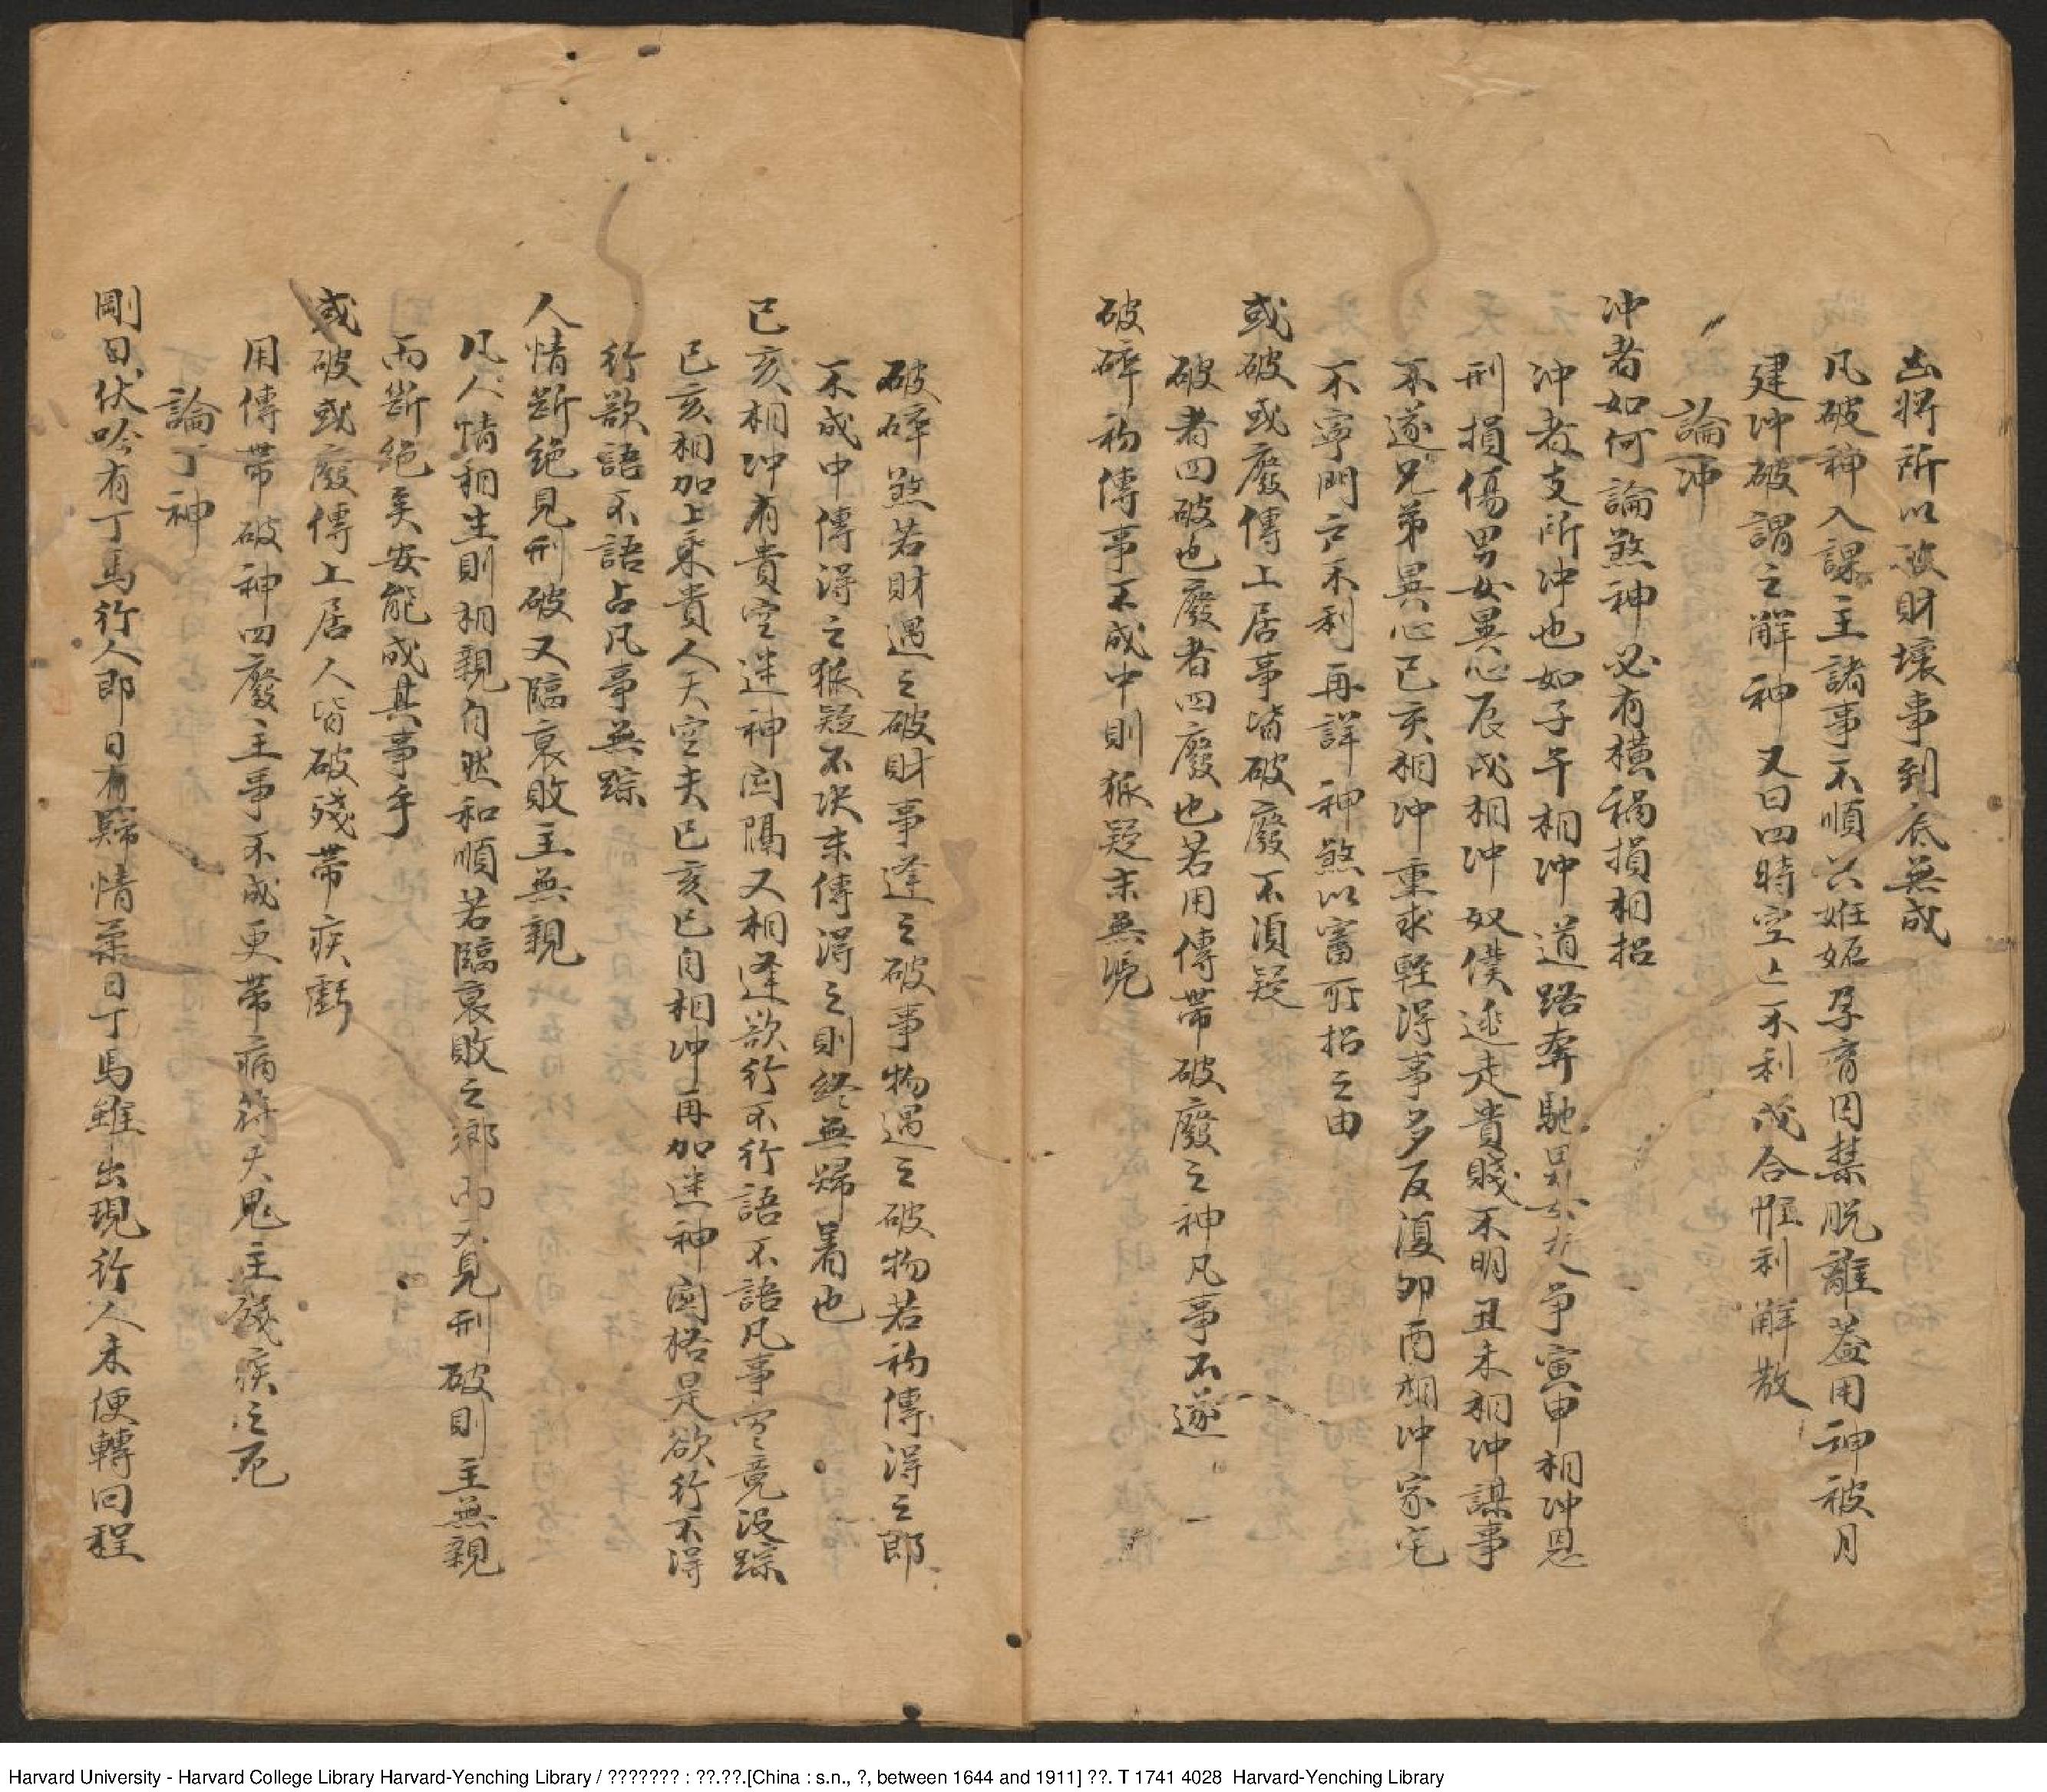 凶將所以破財壞事到底無成
凡破神入課主諸事不順只姙娠孕育囚禁脱離葢用神被月
建冲破謂之解神又曰四時空亡不利成合惟利解散
論冲
冲者如何論煞神必有橫禍損相招
冲者支所冲也如子午相冲道路奔馳男女 争寅申相冲恩
刑損傷男女異心辰戌相冲奴僕逃走貴賤不明丑未相冲謀事
不遂兄弟異心巳亥相冲重求輕得事多反復卯酉相冲家宅
不寧門户不利再詳神煞以審所招之由
或破或廢傳上居事皆破廢不須疑
破者四破也廢者四廢也若用傳帶破廢之神凡事不遂
破碎初傳事不成中則狐疑末無
破碎煞若財遇之破財事逢之破事物遇之破物若初傳得之即
不成中傳得之狐疑不决末傳得之則終無歸着也
巳亥相冲有貴空迷神関隔又相逢欲行不行語不語凡事 竟没踪
巳亥相加上乘貴人天空夫巳亥巳自相冲再加迷神関格是欲行不得
行欲語不語占凡事無踪
人情斷絶見刑破又臨衰敗主無親
凡人情相生則相親自然和順若臨衰敗之鄉而又見刑破則主無親
而斷絶矣安能成其事乎
或破或廢傳上居人皆破殘帶疾虧
用傳帶破神四廢主事不成更帶病符天鬼主殘疾之厄
論丁神
剛日伏吟有丁馬行人即日有歸情柔日丁馬雖出現行人未便轉回程
Harvard University - Harvard College Library Harvard-Yenching Library / ??????? : ??.??.[China : s.n., ?, between 1644 and 1911] ??. T 1741 4028 Harvard-Yenching Library